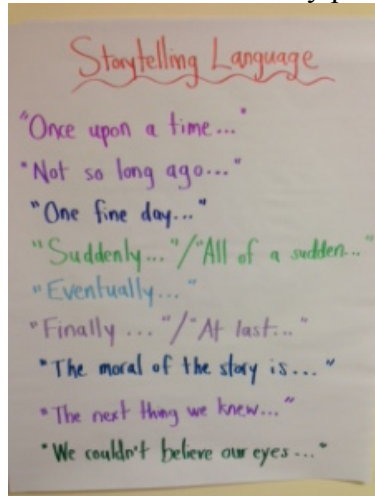 Storytelling Language
"Once upon a time..."
"Not so long ago..."
"One fine day..."
"Suddenly..."/"All of a sudden..."
"Eventually..."
"Finally ..."/"At last..."
"The moral of the story is..."
"The next thing we knew..."
"We couldn't believe our eyes..."